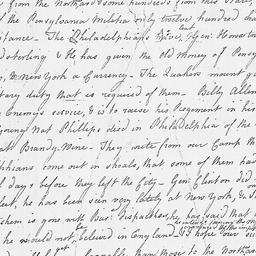 from the Northward some hundreds from this State,
the Pennsylvania Militia only twelve hundred
stance - The Philadelphians &
sterling & He has given the old Money of Pensy
& New York a Currency - The Quakers mount
tary duty that is required of them - Billy Allen
Enemy's service, & is to raise his Regiment in his
young Nat Phillips died in Philadelphia of the
at Brandy-Wine - They write from our Camp th
phians come out in shoals, that some of them had
days before they left the City - Genl Clinton did
lent, he has been seen very lately at New York, &
them is gone with Busi Dispatches, he has said that
he would not be believed in England - & I hope our
than those to the Northw